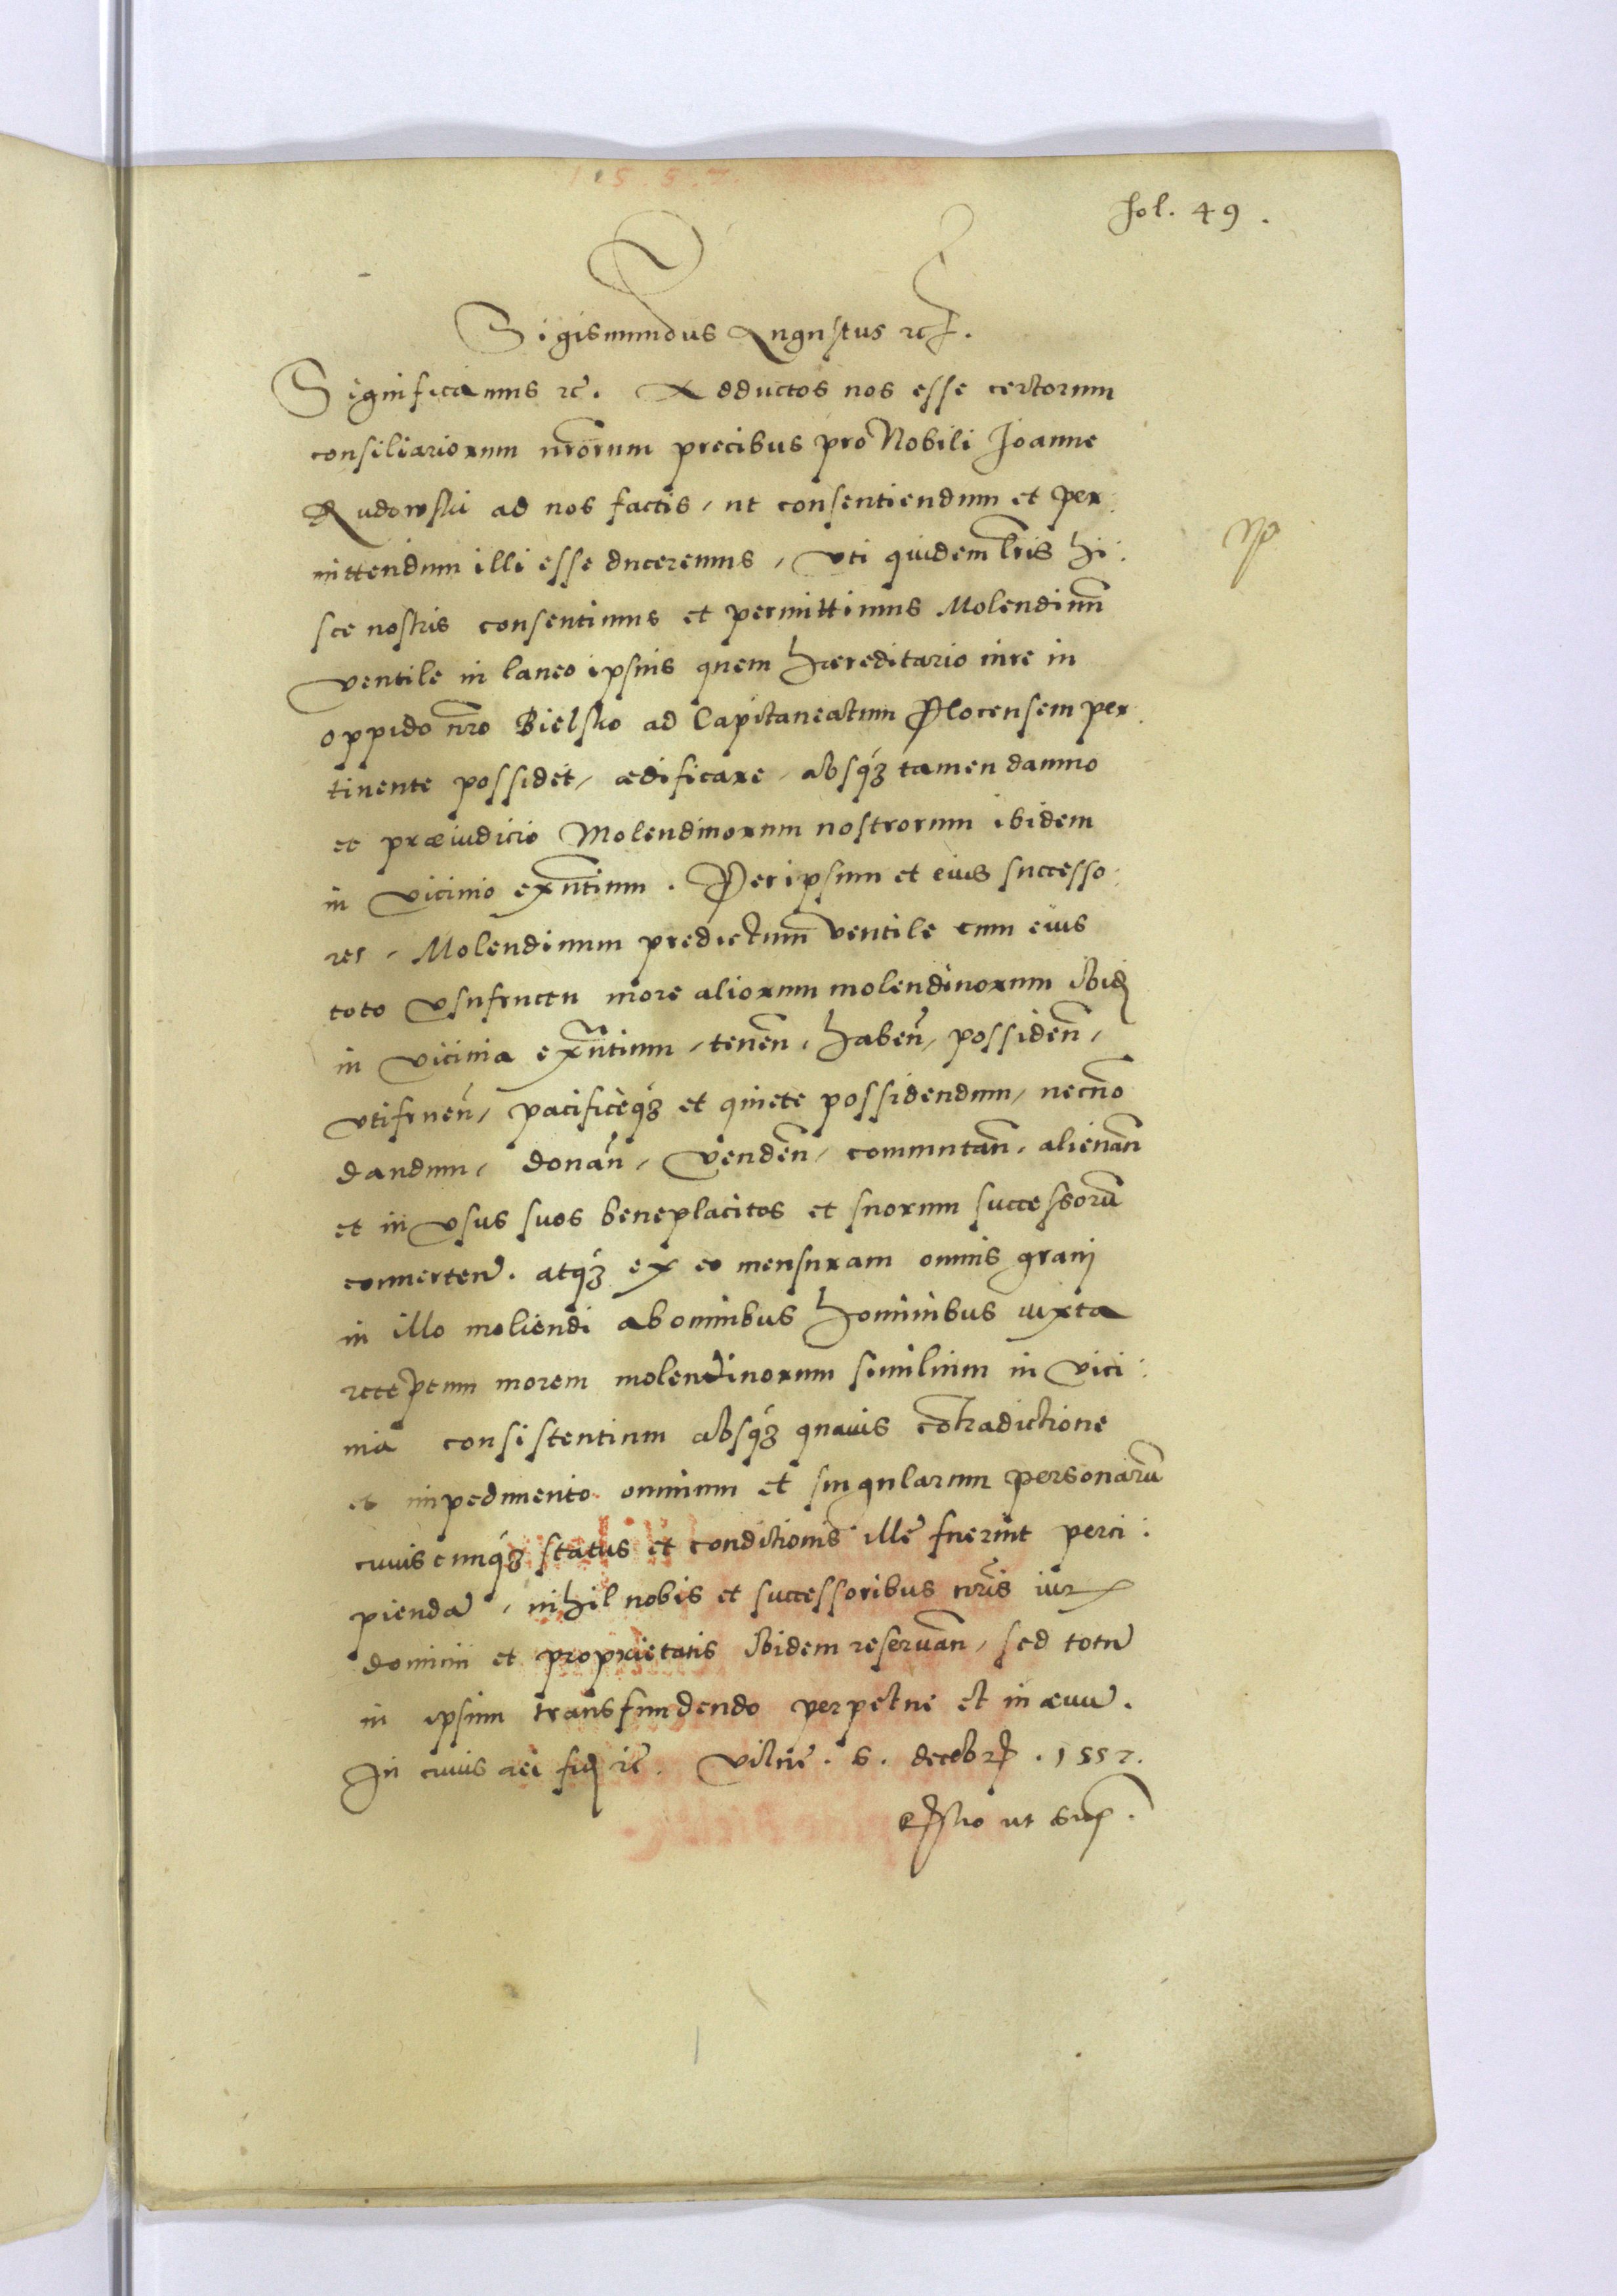 fol. 49.
Sigismundus Augustus rc.
Significamus rc. Adductos nos esse certorum
consiliariorum nr̃orum precibus pro Nobili Joanne
Rudowski ad nos factis, ut consentiendum et per:
mittendum illi esse duceremus, vti quidem lr̃is hi:
sce nostris consentimus et permittimus Molendinũ
ventile in laneo ipsius quem hæreditario iure in
oppido nr̃o Bielsko ad Capitaneatum Plocensem per:
tinente possidet, ædificare, absq₃ tamen damno
et præiudicio Molendinorum nostrorum ibidem
in vicinio exñtium. Per ipsum et eius successo:
res, Molendinum predictum ventile cum eius
toto vsufructu more aliorum molendinorum ibid
in vicinia exñtium, teneñ, habeñ, possideñ,
vtifrueñ, pacificeq₃ et quiete possidendum, necnõ
dandum, donañ, vendeñ, commutañ, alienañ
et in vsus suos beneplacitos et suorum successorũ
conuerteñ. atq₃ ex eo mensuram omnis granj
in illo moliendi ab omnibus hominibus iuxta
receptum morem molendinorum similium in vici:
nia consistentium absq₃ quauis cõtradictione
et impedimento omnium et singularum personarũ
cuiuscunq₃ status et conditionis ille fuerint perci:
piendã, nihil nobis et successoribus nr̃is iur
dominii et proprietatis ibidem reseruañ, sed totũ
in ipsum transfundendo perpetue et in æuũ.
In cuius rei fid rc. Vilnẽ. 6. decebr. 1557.
ut sup.